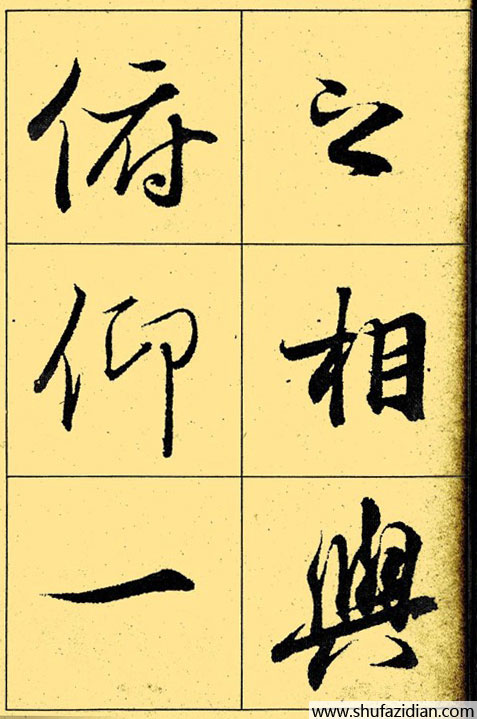 之相與
俯仰一
www.shufazidian.com